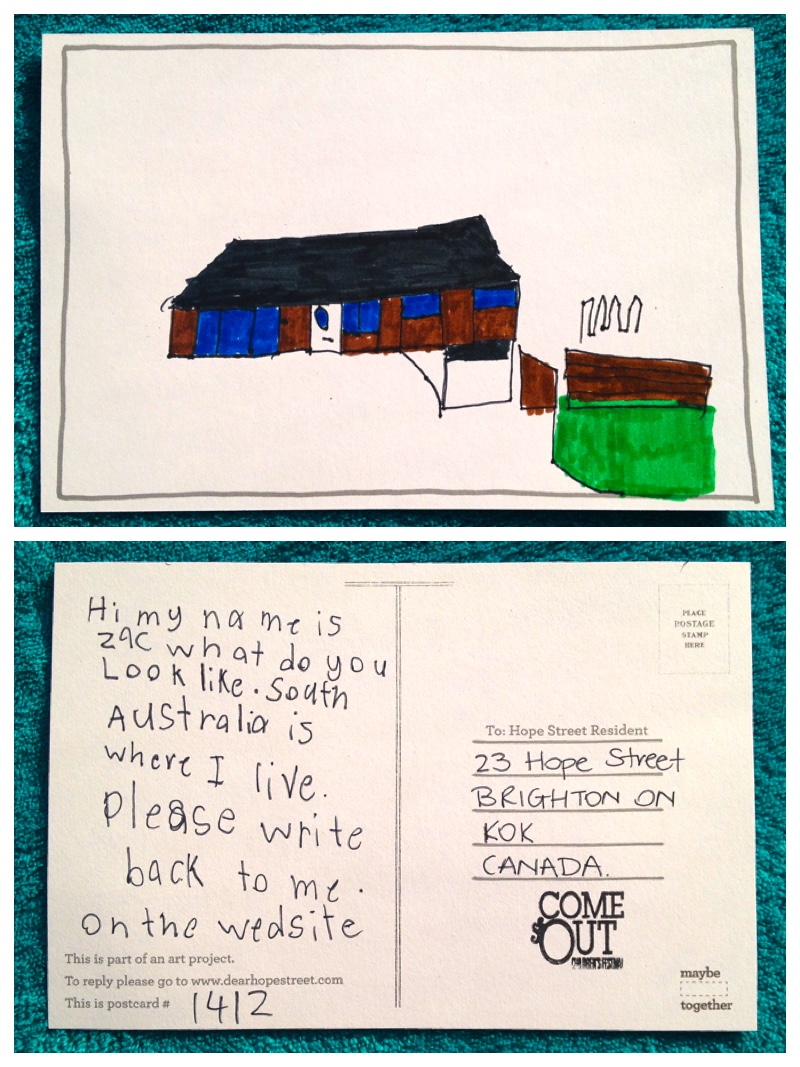 Hi my name is
zac what do you
Look like. South
Australia is
where I live.
Please write
back to me.
on the wedsite
This is part of an art project.
To reply please go to www.dearhopestreet.com
This is postcard # 1412
PLACE
POSTAGE
STAMP
HERE
To: Hope Street Resident
23 Hope Street
BRIGHTON ON
KOK
CANADA.
COME
OUT
CHILDREN'S FESTIVAL
maybe
together